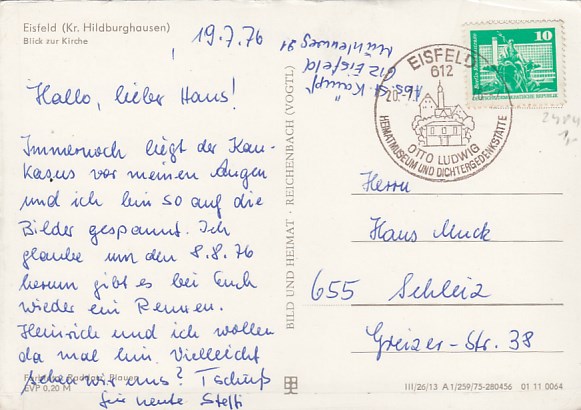 Eisfeld (Kr. Hildburghausen)
Blick zur Kirche
19.7.76
Hallo, lieber Hans!
Immernoch liegt der Kau-
kasus vor meinen Augen
und ich bin so auf die
Bilder gespannt. Ich
glaube um den 8.8.76
herum gibt es bei Euch
wieder ein Rennen.
Heinrich und ich wollen
da mal hin. Vielleicht
sehen wir uns? Tschüß
für heute Steffi
EVP 0,20 M
BILD UND HEIMAT · REICHENBACH (VOGTL)
Abs. St. Kampf
612 Eisfeld
Mühlenweg 21
EISFELD
612
20.-7.
OTTO LUDWIG
HEIMATMUSEUM UND DICHTERGEDENKSTÄTTE
10
Herrn
Hans Muck
655 Schleiz
Greizer-Str. 38
III/26/13 A 1/259/75-280456 01 11 0064